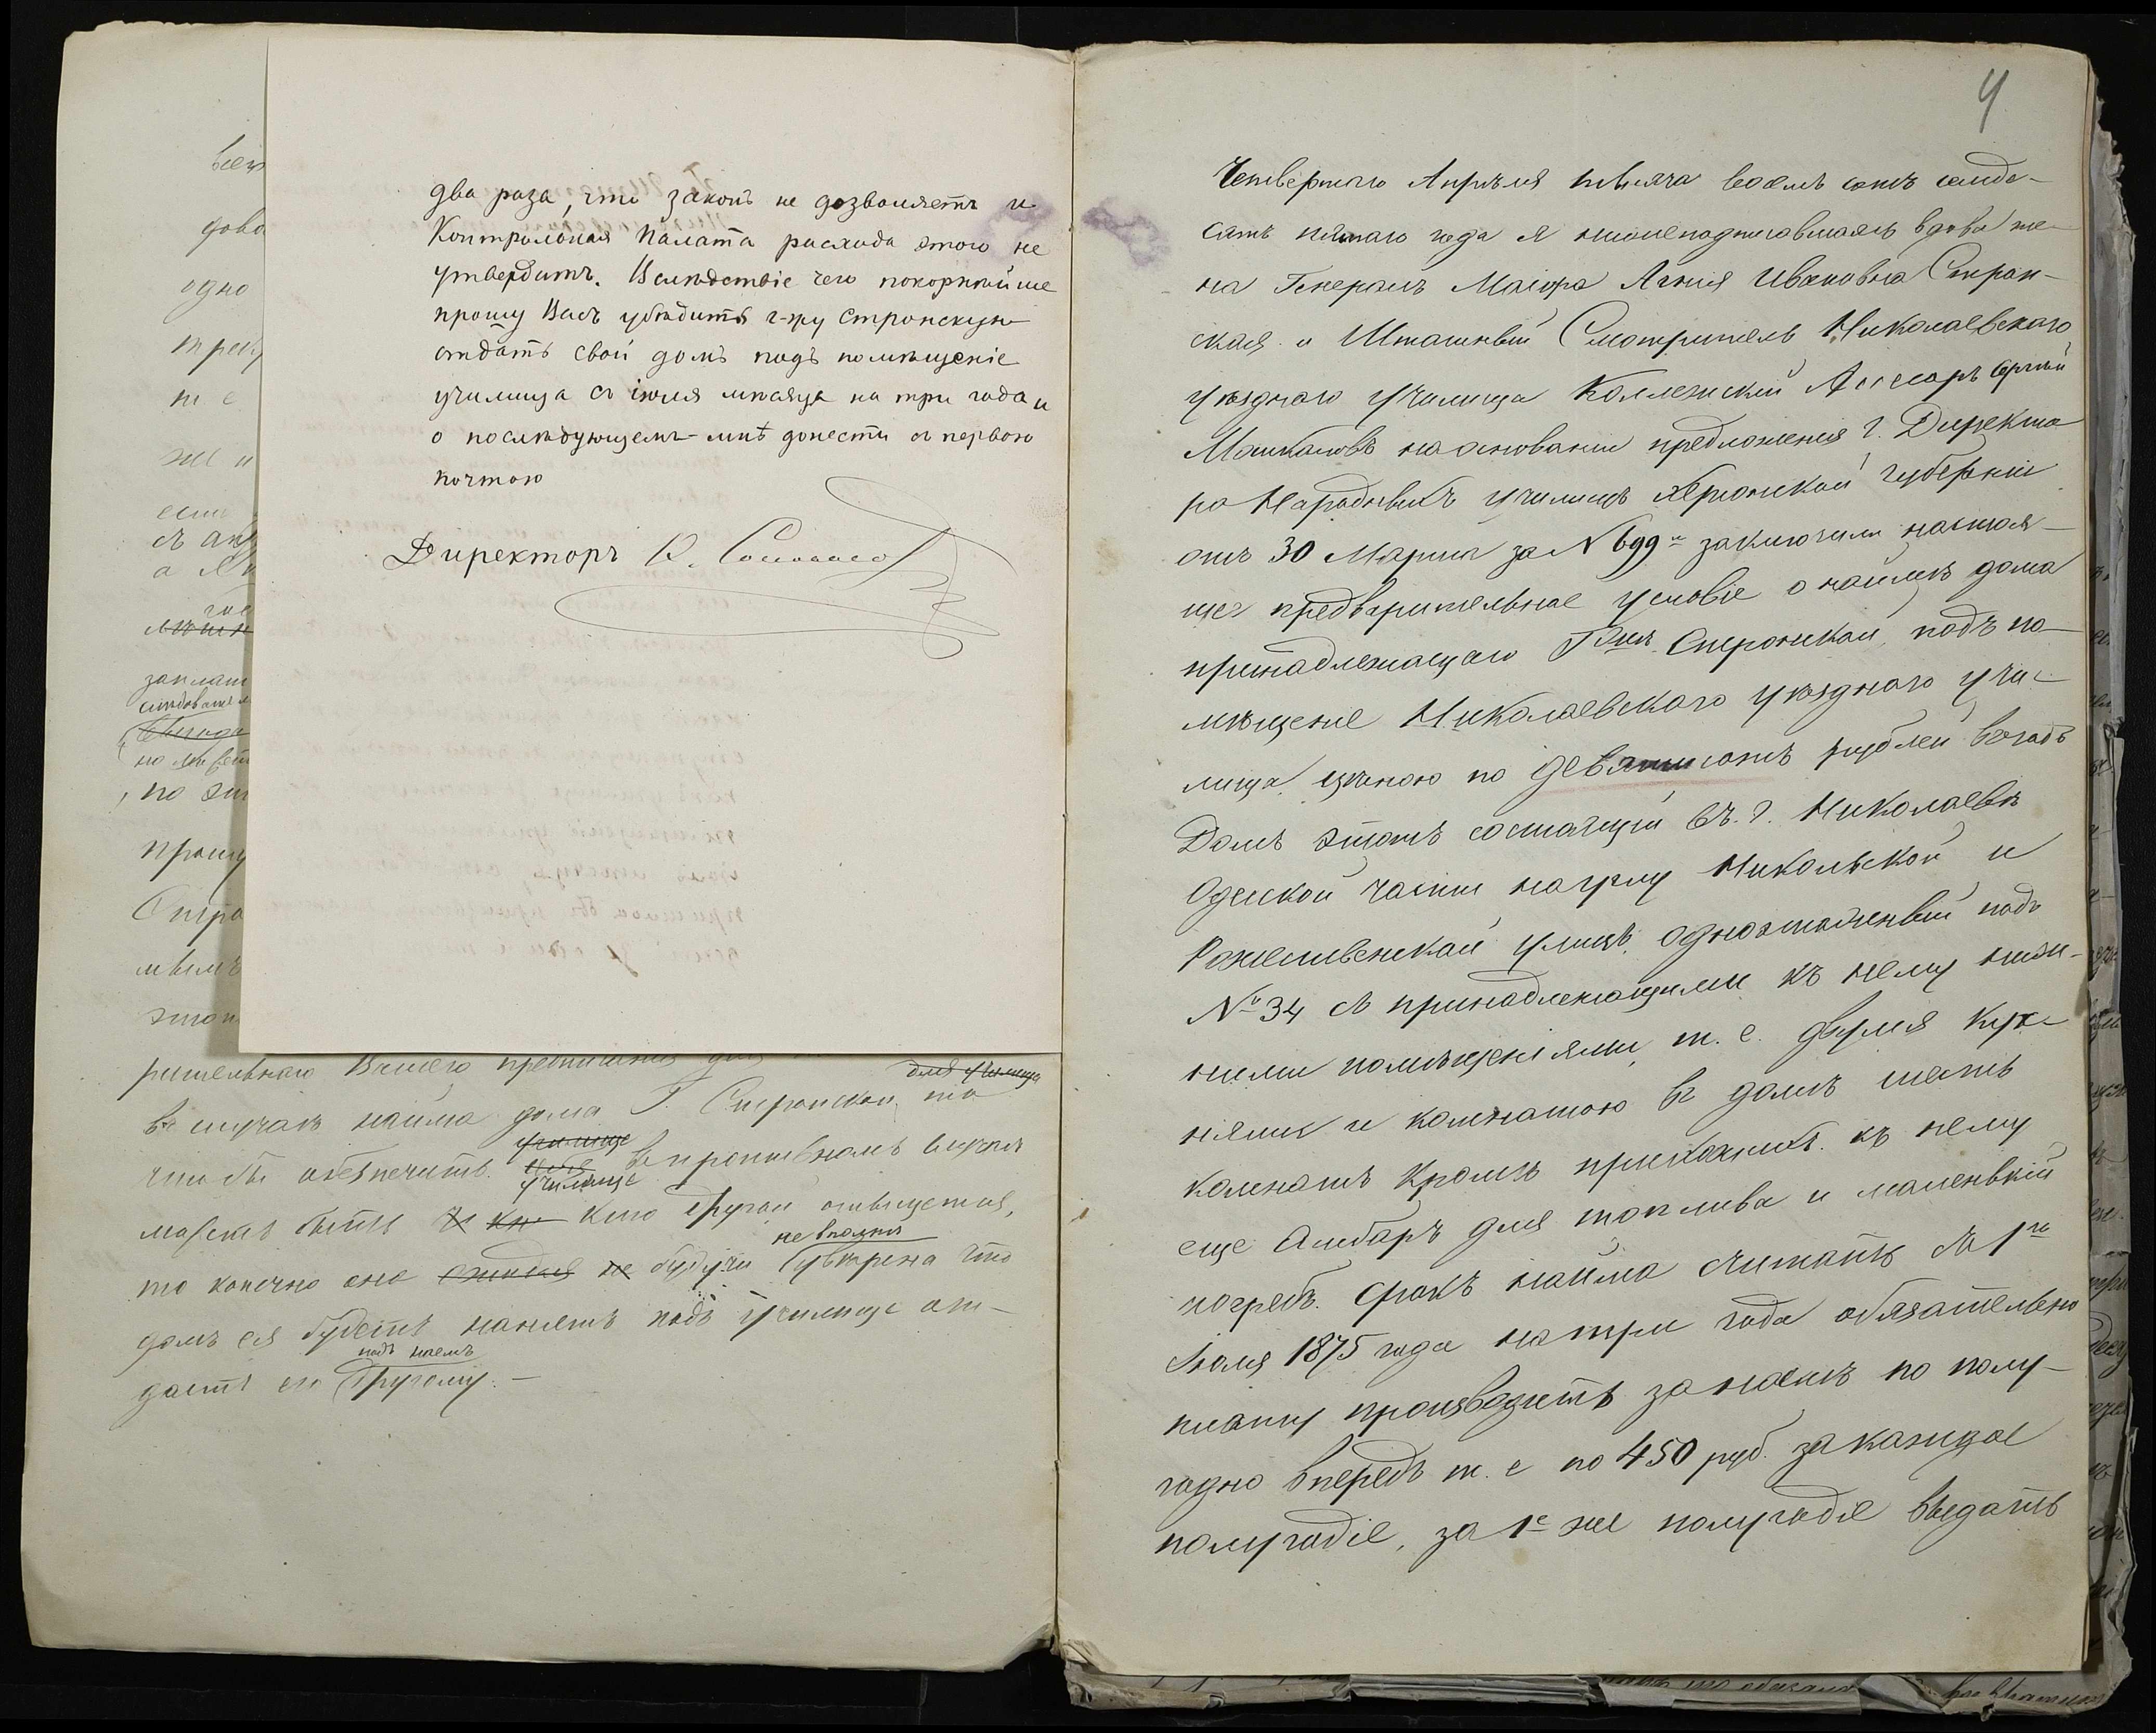 два раза, что законъ не дозволяетъ и
Контрольная Палата расхода этого не
утвердитъ. Вслѣдствіе чего покорнѣйше
прошу Васъ убѣдить г-жу Стронскую
отдать свой домъ подъ помѣщеніе
училища съ іюля мѣсяца на три года и
о послѣдующемъ мнѣ донести съ первою
почтою
Директоръ К.
всего
дово
одно
треб
же и
если
съ ап
заплат
слѣдовател
Выгоды
по эт
прошу
Стро
рительнаго Вашего предписанія для
въ случаѣ найма дома Г. Стронской, то для училища
чтобы обезпечить училище себя училище въ противномъ случаѣ
можетъ быть и кто другой отыщется,
то конечно она не будучи не вполнѣ увѣрена что
домъ ея будетъ нанятъ подъ училище от-
дастъ его подъ наемъ другому. —
4
Четвертаго Апрѣля тысяча восемь сотъ семьде-
сятъ пятаго года я нижеподписавшаяся вдова же-
на Генералъ Маіора Агнія Ивановна Строн-
ская и Штатный Смотритель Николаевскаго
уѣзднаго училища Коллежскій Ассесоръ Сергѣй
на основаніи предложенія Г. Директо
ра Народныхъ училищъ Херсонской губерніи
отъ 30 Марта за № 699 заключили настоя-
щее предварительное условіе о наймѣ дома
принадлежащаго Г-жѣ Стронской, подъ по-
мѣщеніе Николаевскаго уѣзднаго учи-
лища, цѣною по девятисотъ рублей въ годъ
Домъ этотъ состоящій въ г. Николаевѣ
Одесской части на углу Никольской и
Рожественской улицъ, одноэтажный подъ
№ 34 съ принадлежащими къ нему нижн-
ними помѣщеніями, т. е. двумя кух-
нями и комнатою въ домѣ шесть
комнатъ кромѣ прихожихъ. къ нему
еще Амбаръ для топлива и маленькій
погребъ. Срокъ найма считать съ 1го
Іюля 1875 года на три года обязательно
плату производить за наемъ по полу-
годно впередъ т. е по 450 руб. за каждое
полугодіе, за 1е же полугодіе выдать